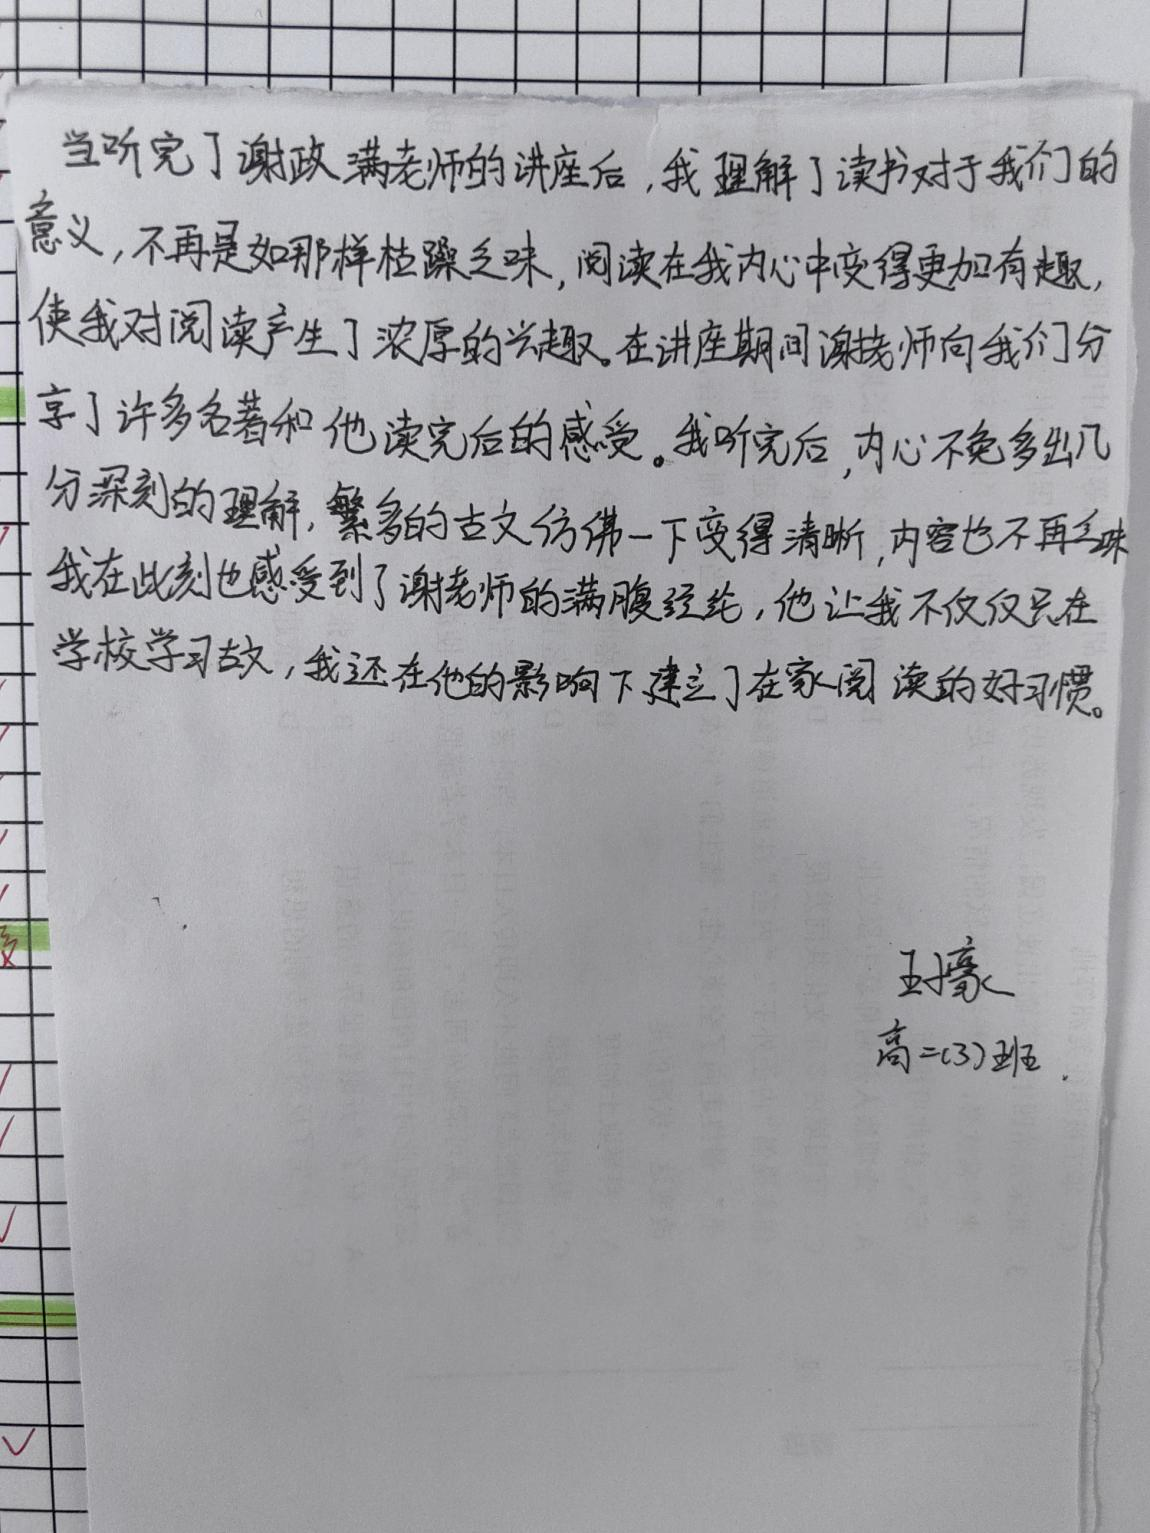 当听完了谢政满老师的讲座后，我理解了读书对于我们的
意义，不再是如那样枯躁乏味，阅读在我内心中变得更加有趣，
使我对阅读产生了浓厚的兴趣。在讲座期间谢老师向我们分
享了许多名著和他读完后的感受。我听完后，内心不免多出几
分深刻的理解，繁多的古文仿佛一下变得清晰，内容也不再乏味
我在此刻也感受到了谢老师的满腹经纶，他让我不仅仅只在
学校学习古文，我还在他的影响下建立了在家阅读的好习惯。
王子豪
高二(3)班